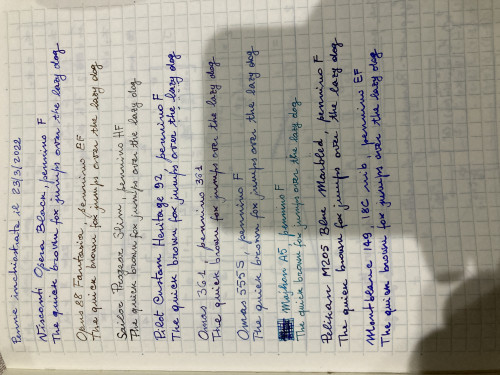 Penne inchiostrate il 23/3/2022
Visconti Opera Black, pennino F
The quick brown fox jumps over the lazy dog
Opus 88 Fantasia, pennino EF
The quick brown fox jumps over the lazy dog
Sailor Progear Slim, pennino HF
The quick brown fox jumps over the lazy dog
Pilot Custom Heritage 92, pennino F
The quick brown fox jumps over the lazy dog
Omas 361, pennino 361
The quick brown fox jumps over the lazy dog
Omas 555S, pennino F
The quick brown fox jumps over the lazy dog
Majhon A5 pennino F
The quick brown fox jumps over the lazy dog
Pelikan M205 Blue Marbled, pennino F
The quick brown fox jumps over the lazy dog
Montblanc 149, 18C nib, pennino EF
The quick brown fox jumps over the lazy dog